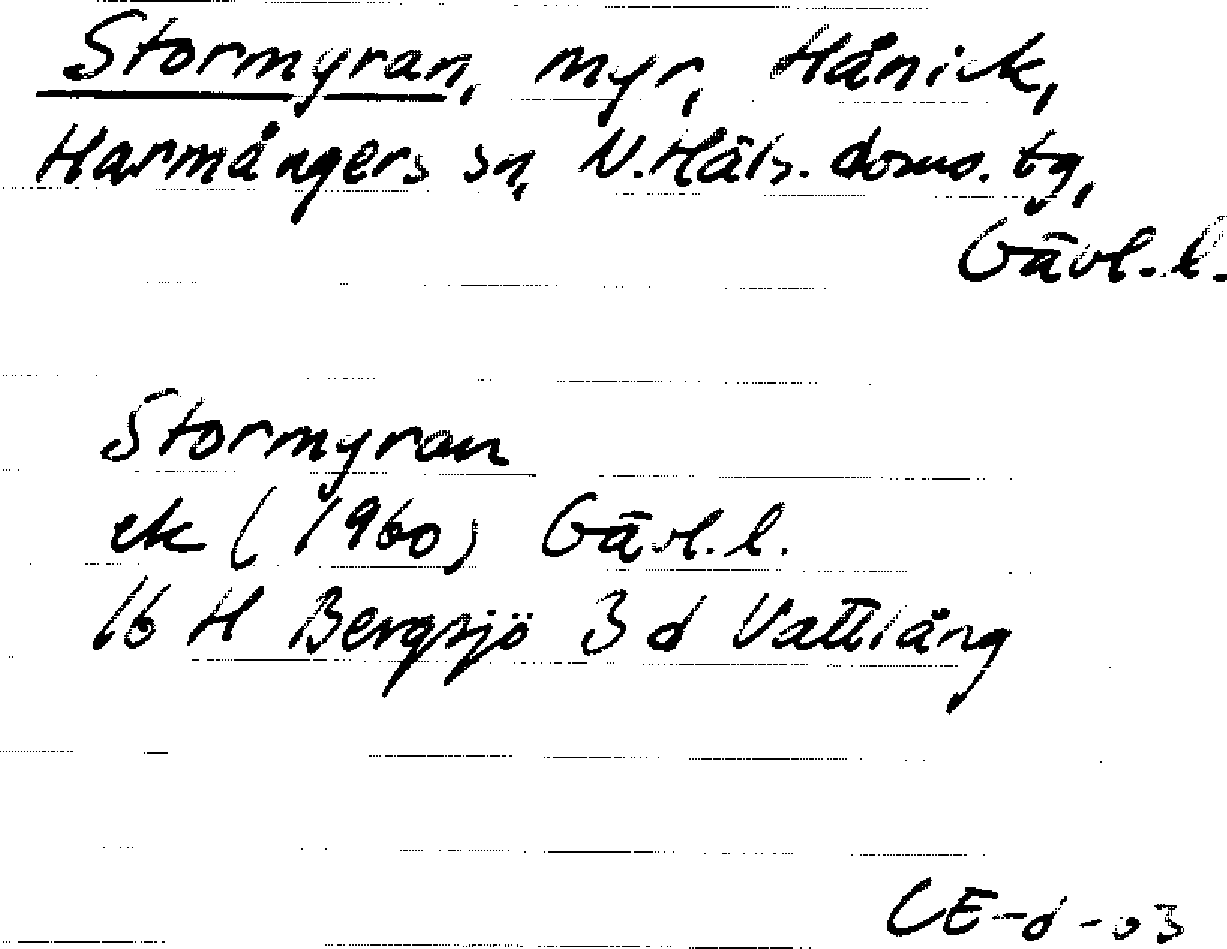 Stormyran, myr, Hånick,
Harmångers sn, N. Häls. doms. tg,
Gävl. l.
Stormyran
ek (1960) Gävl. l.
16 H Bergsjö 3 d Vattlång
CE-d-03